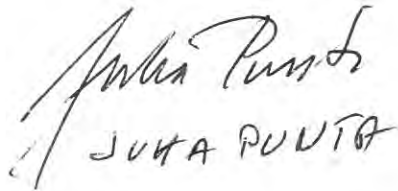 Juha Punta
JUHA PUNTA